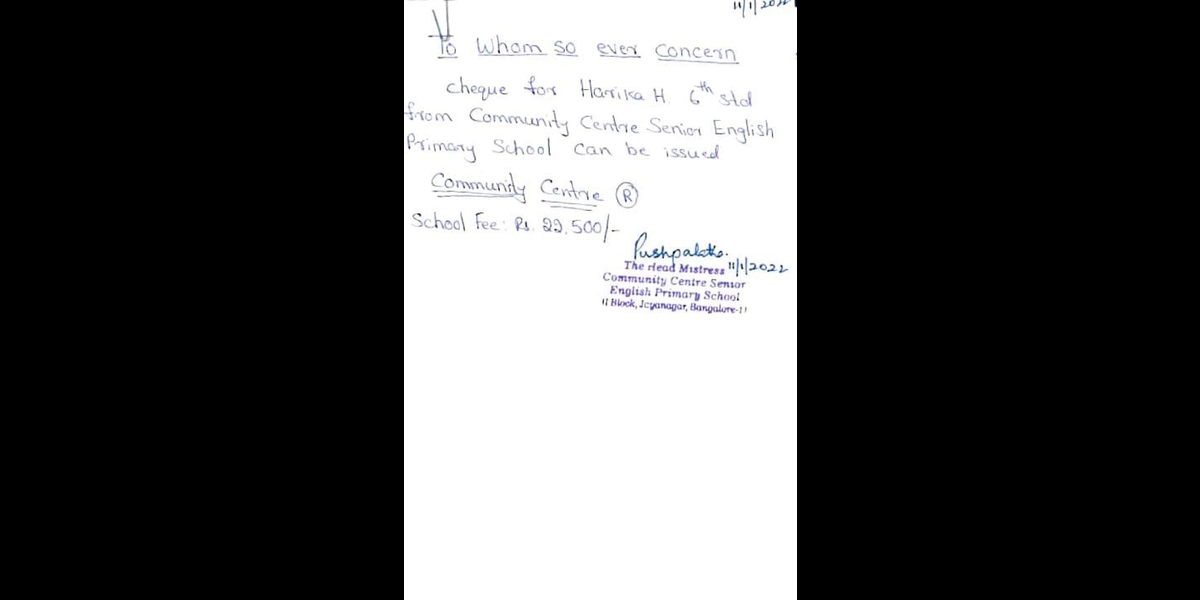 11/1/2022
To Whom so ever concern
cheque for Harika H. 6th std
from Community Centre Senior English
Primary School can be issued
Community Centre ®
School Fee: Rs. 22,500/-
Pushpalatha.
The Head Mistress 11/1/2022
Community Centre Senior
English Primary School
Block, Jcyanagar, Bangalore-11